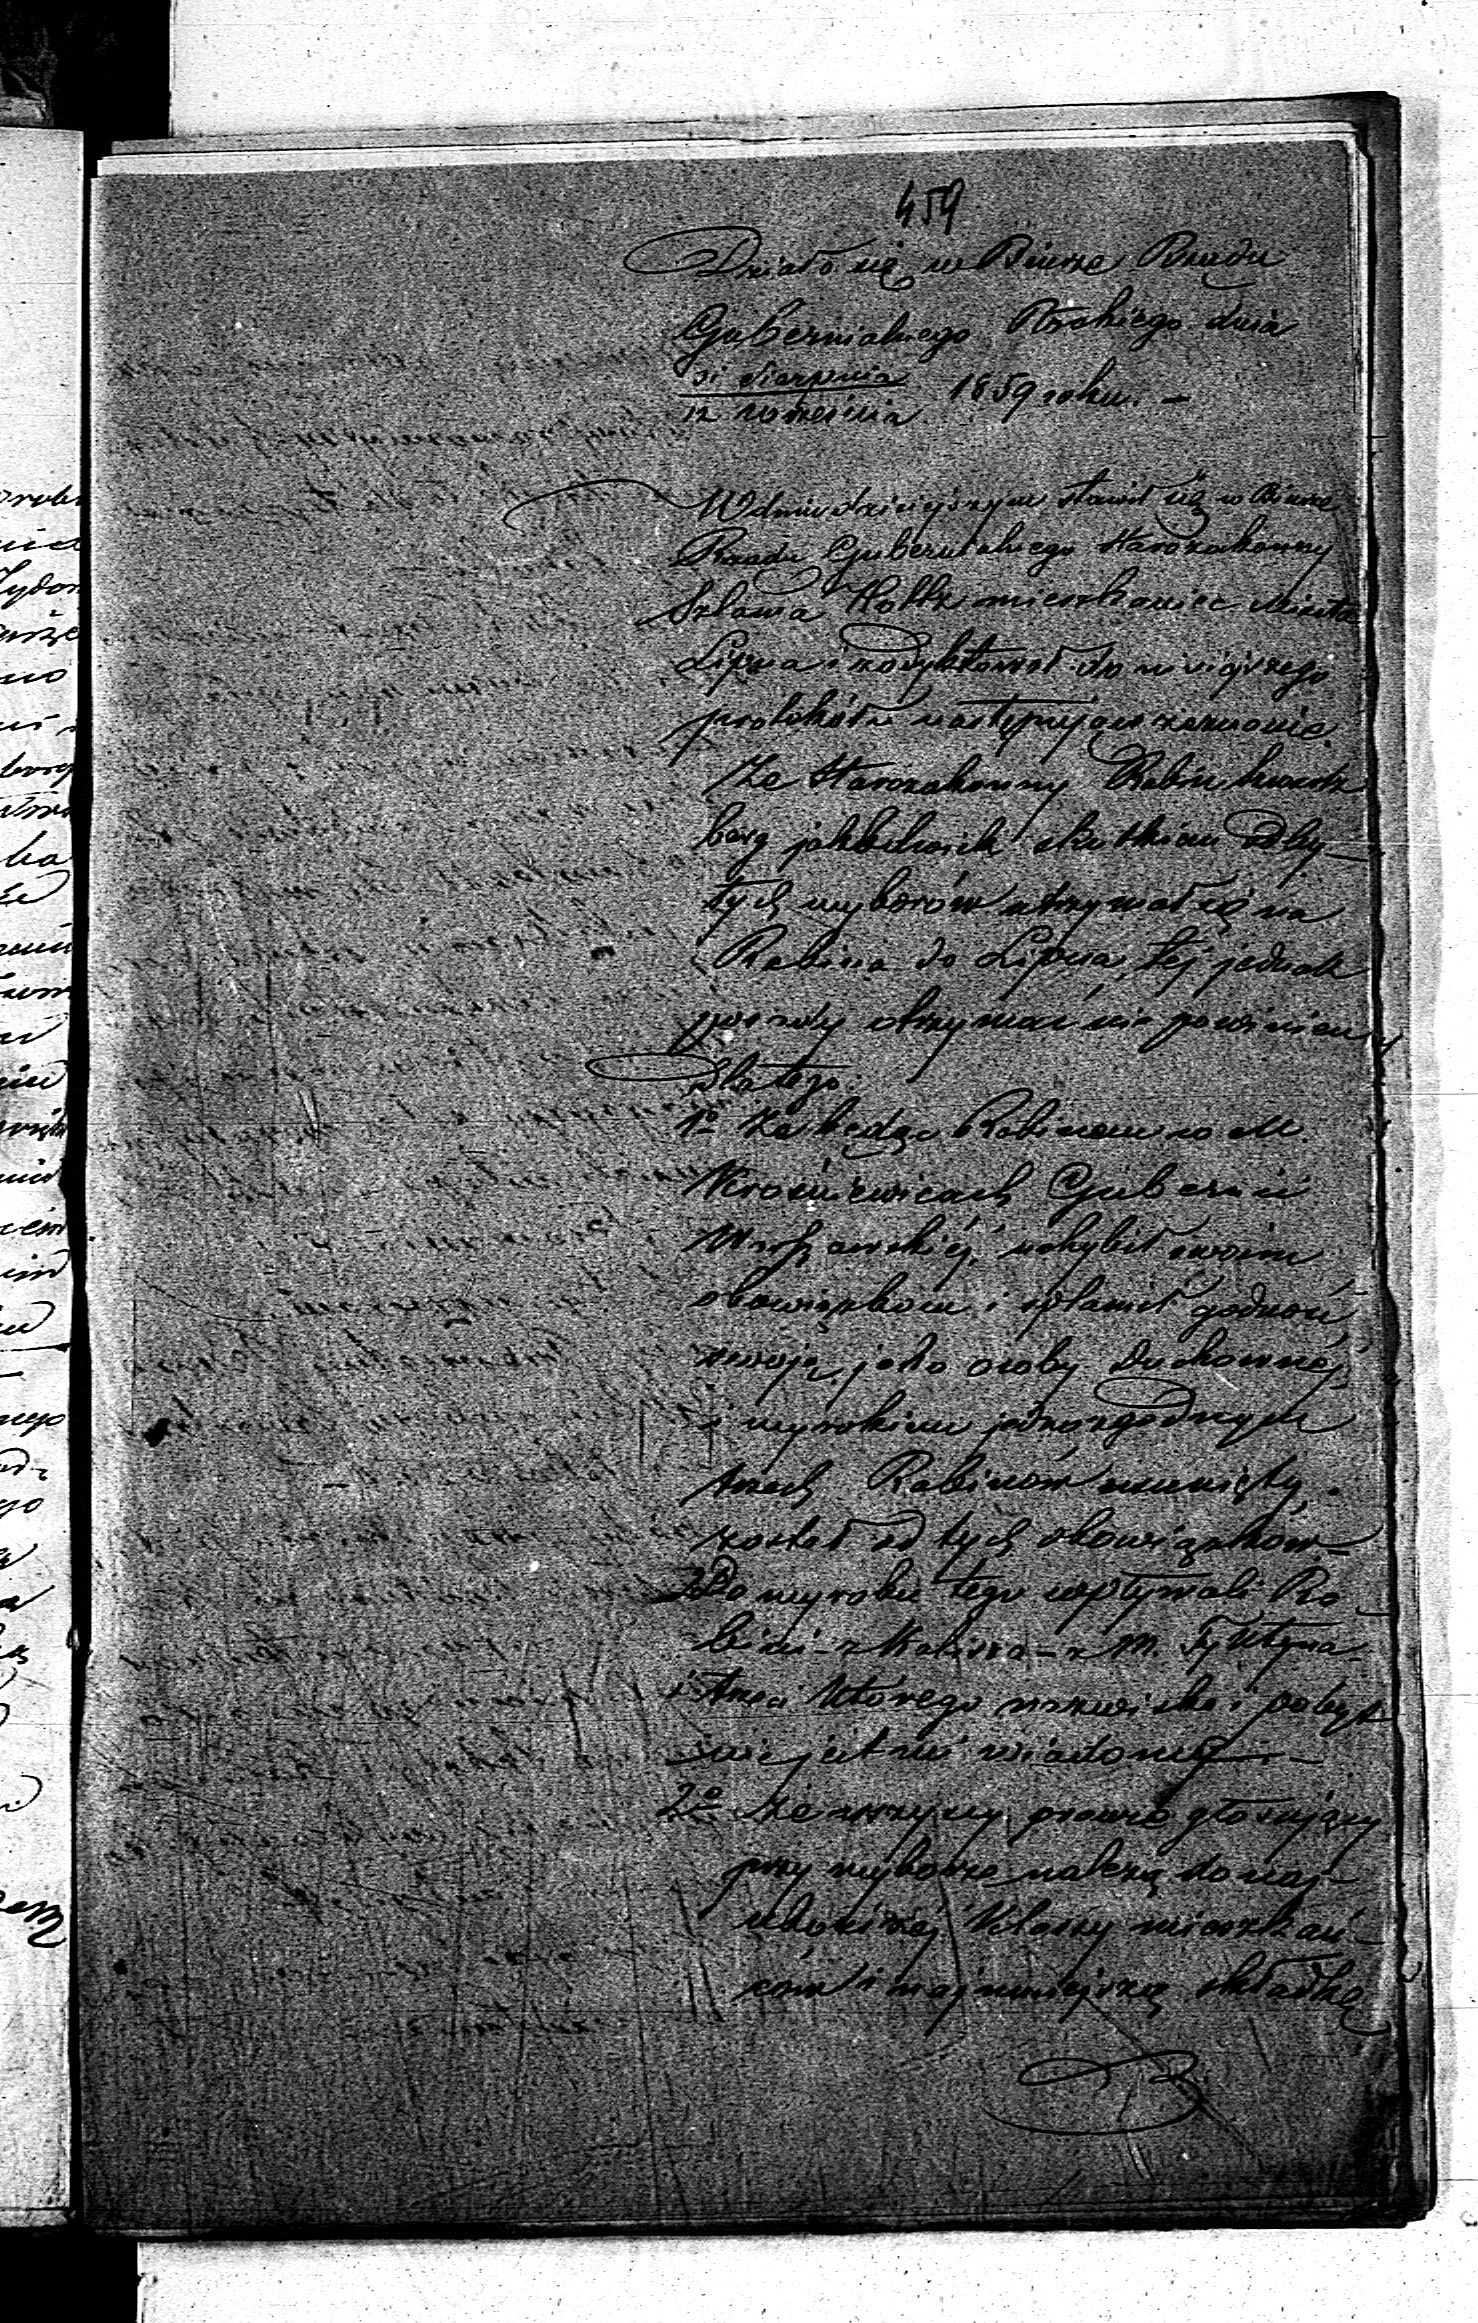 459
Działo się w Biurze Rządu
Gubernialnego Płockiego dnia
31 Sierpnia
12 września 1859 roku. –
W dniu dzisiejszym stawił się w Biurze
Rządu Gubernialnego Starozakonny
Szlama Holtz mieszkaniec Miasta
Lipna i zadyktował do niniejszego
protokółu następujące zeznanie.
Że Starozakonny Rabin
berg jakkolwiek skutkiem odby-
tych wyborów utrzymał się na
Rabina do Lipna, tej jednak
posady otrzymać nie powinien
Dlatego:
1o Że będąc Rabinem w M.
Krośniewicach Gubernii
Warszawskiej, uchybił swoim
obowiązkom i splamił godność
swoją jako osoby Duchownej
i wyrokiem jednozgodnym
trzech Rabinów usunięty
został od tych obowiązków –
Do wyroku tego wpływali Ra-
bini – z Kalisza – z M.
i trzeci którego nazwisko i pobyt
nie jest mi wiadomy –
2o Że wszyscy prawie głosujący
przy wyborze należą do naj-
uboższej klassy mieszkań-
ców i najmniejszą składkę